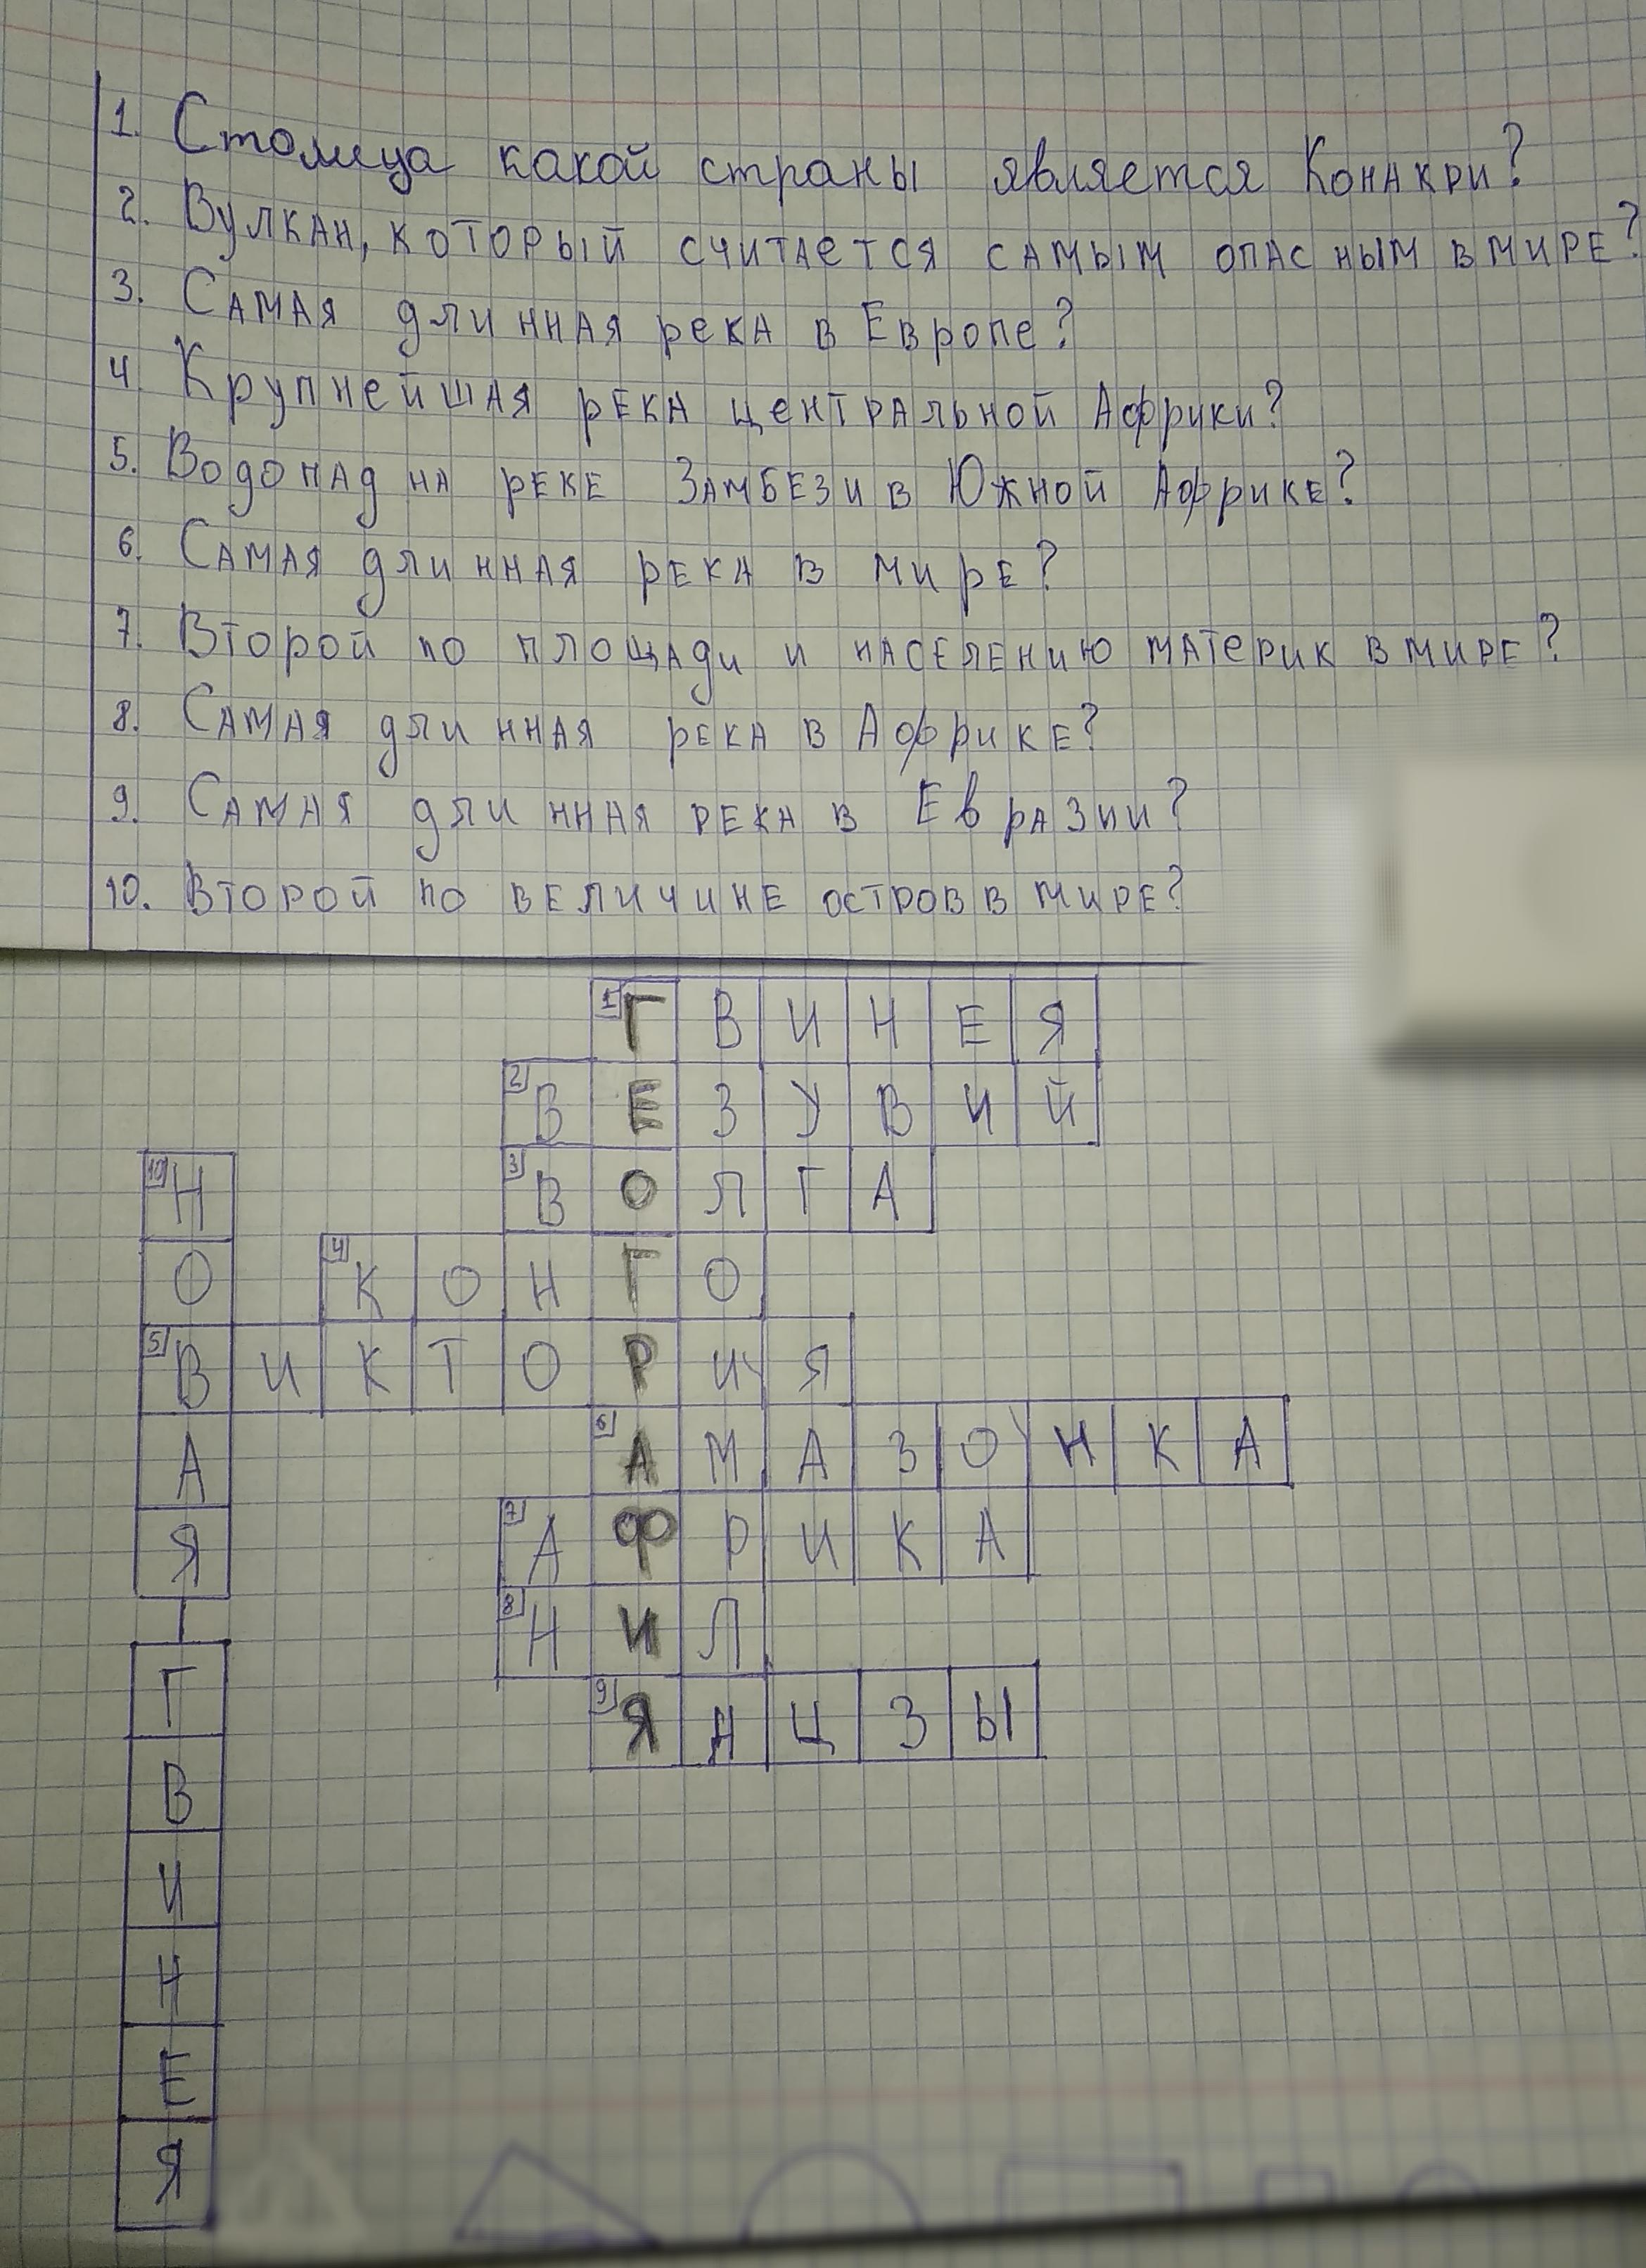 1. Столица какой страны является Конакри?
2. Вулкан, который считается самым опасным в мире?
3. Самая длинная река в Европе?
4 Крупнейшая река центральной Африки?
5. Водопад на реке Замбези в Южной Африке?
6. Самая длинная река в мире?
7. Второй по площади и населению материк в мире?
8. Самая длинная река в Африке?
9. Самая длинная река в Евразии?
10. Второй по величине остров в мире?
1 ГВИНЕЯ
2 ВЕЗУВИЙ
3 ВОЛГА
4 КОНГО
5 ВИКТОРИЯ
6 АМАЗОНКА
7 АФРИКА
8 НИЛ
9 ЯНЦЗЫ
10 НОВАЯ-ГВИНЕЯ